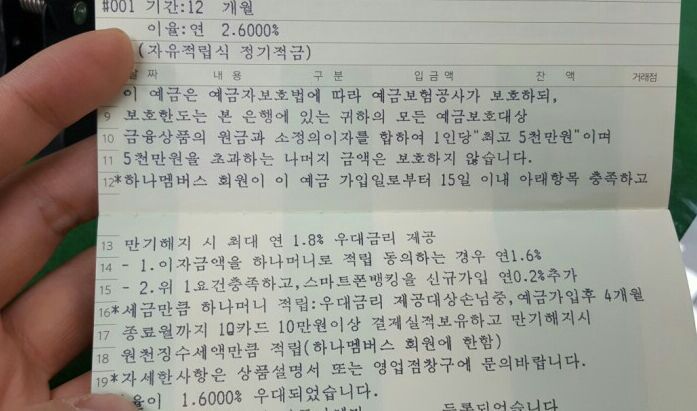 #001 기간:12 개월
이율:연 2.6000%
(자유적립식 정기적금)
날짜 내용 구분 입금액 잔액 거래점
이 예금은 예금자보호법에 따라 예금보험공사가 보호하되,
9 보호한도는 본 은행에 있는 귀하의 모든 예금보호대상
10 금융상품의 원금과 소정의이자를 합하여 1인당"최고 5천만원"이며
11 5천만원을 초과하는 나머지 금액은 보호하지 않습니다.
12*하나멤버스 회원이 이 예금 가입일로부터 15일 이내 아래항목 충족하고
13 만기해지 시 최대 연 1.8% 우대금리 제공
14 - 1.이자금액을 하나머니로 적립 동의하는 경우 연1.6%
15 - 2.위 1요건충족하고,스마트폰뱅킹을 신규가입 연0.2%추가
16*세금만큼 하나머니 적립:우대금리 제공대상손님중,예금가입후 4개월
17 종료월까지 1Q카드 10만원이상 결제실적보유하고 만기해지시
18 원천징수세액만큼 적립(하나멤버스 회원에 한함)
19*자세한사항은 상품설명서 또는 영업점창구에 문의바랍니다.
율이 1.6000% 우대되었습니다.
등록되었습니다.